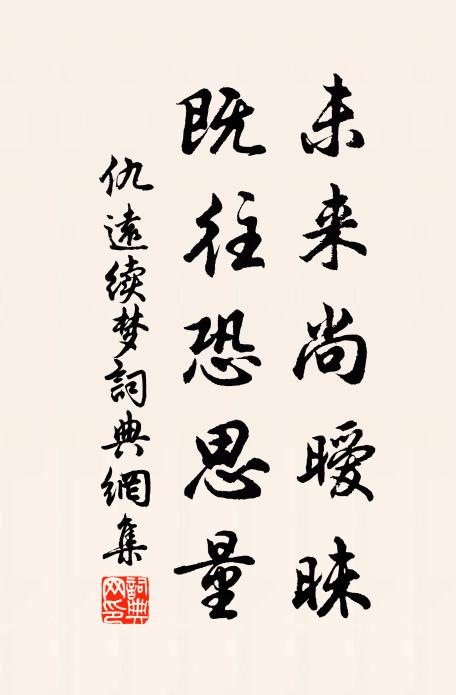 未来尚曖昧
既往恐思量
仇遠续梦詞典網集
詞典网印